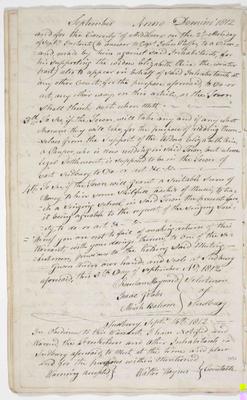 September Anno Domini 1812
and for the County of Middlesex on the 2d Monday of
Sept. Instant to answer to Capt. John
and by him against said Inhabitants for
his supporting the widow Elizabeth
past also to appear in behalf of said Inhabitants at
any other Court for the purpose aforesaid to Do or
act any other way on this article as the Town
Shall think best when mett
3d To See if the Town will take any and if any what
measures they will take for the purpose of relieving them
selves from the Support of the Widow Elizabeth
a Pauper who is now residing in this Town but whose
legal Settlement is supposed to be in the Town of
East Sudbury to Do or act &c.
4th To See if the Town will grant a suitable Sum of
Money to hire some Suitable person or Persons to tea
ch a Singing School in said Town the present
it being agreeable to the request of the Singing Soci
ety to do or act &c.
Hereof you are not to fail of making return of this
Warrant with your doings thereon to one of the Se
lectmen previous to the hour of Said Meeting
Given under our hands and Seals at Sudbury
aforesaid this 5th Day of September AD 1812
Selectmen
of
Sudbury
Sudbury Sept. 14th 1812
In Obedience to this Warrant I have Notified and
Warned the Freeholders and other Inhabitants in
Sudbury aforesaid to meet at the time and place
and for the purposes within Mentioned
Warning accepted
Walter Haynes Constable